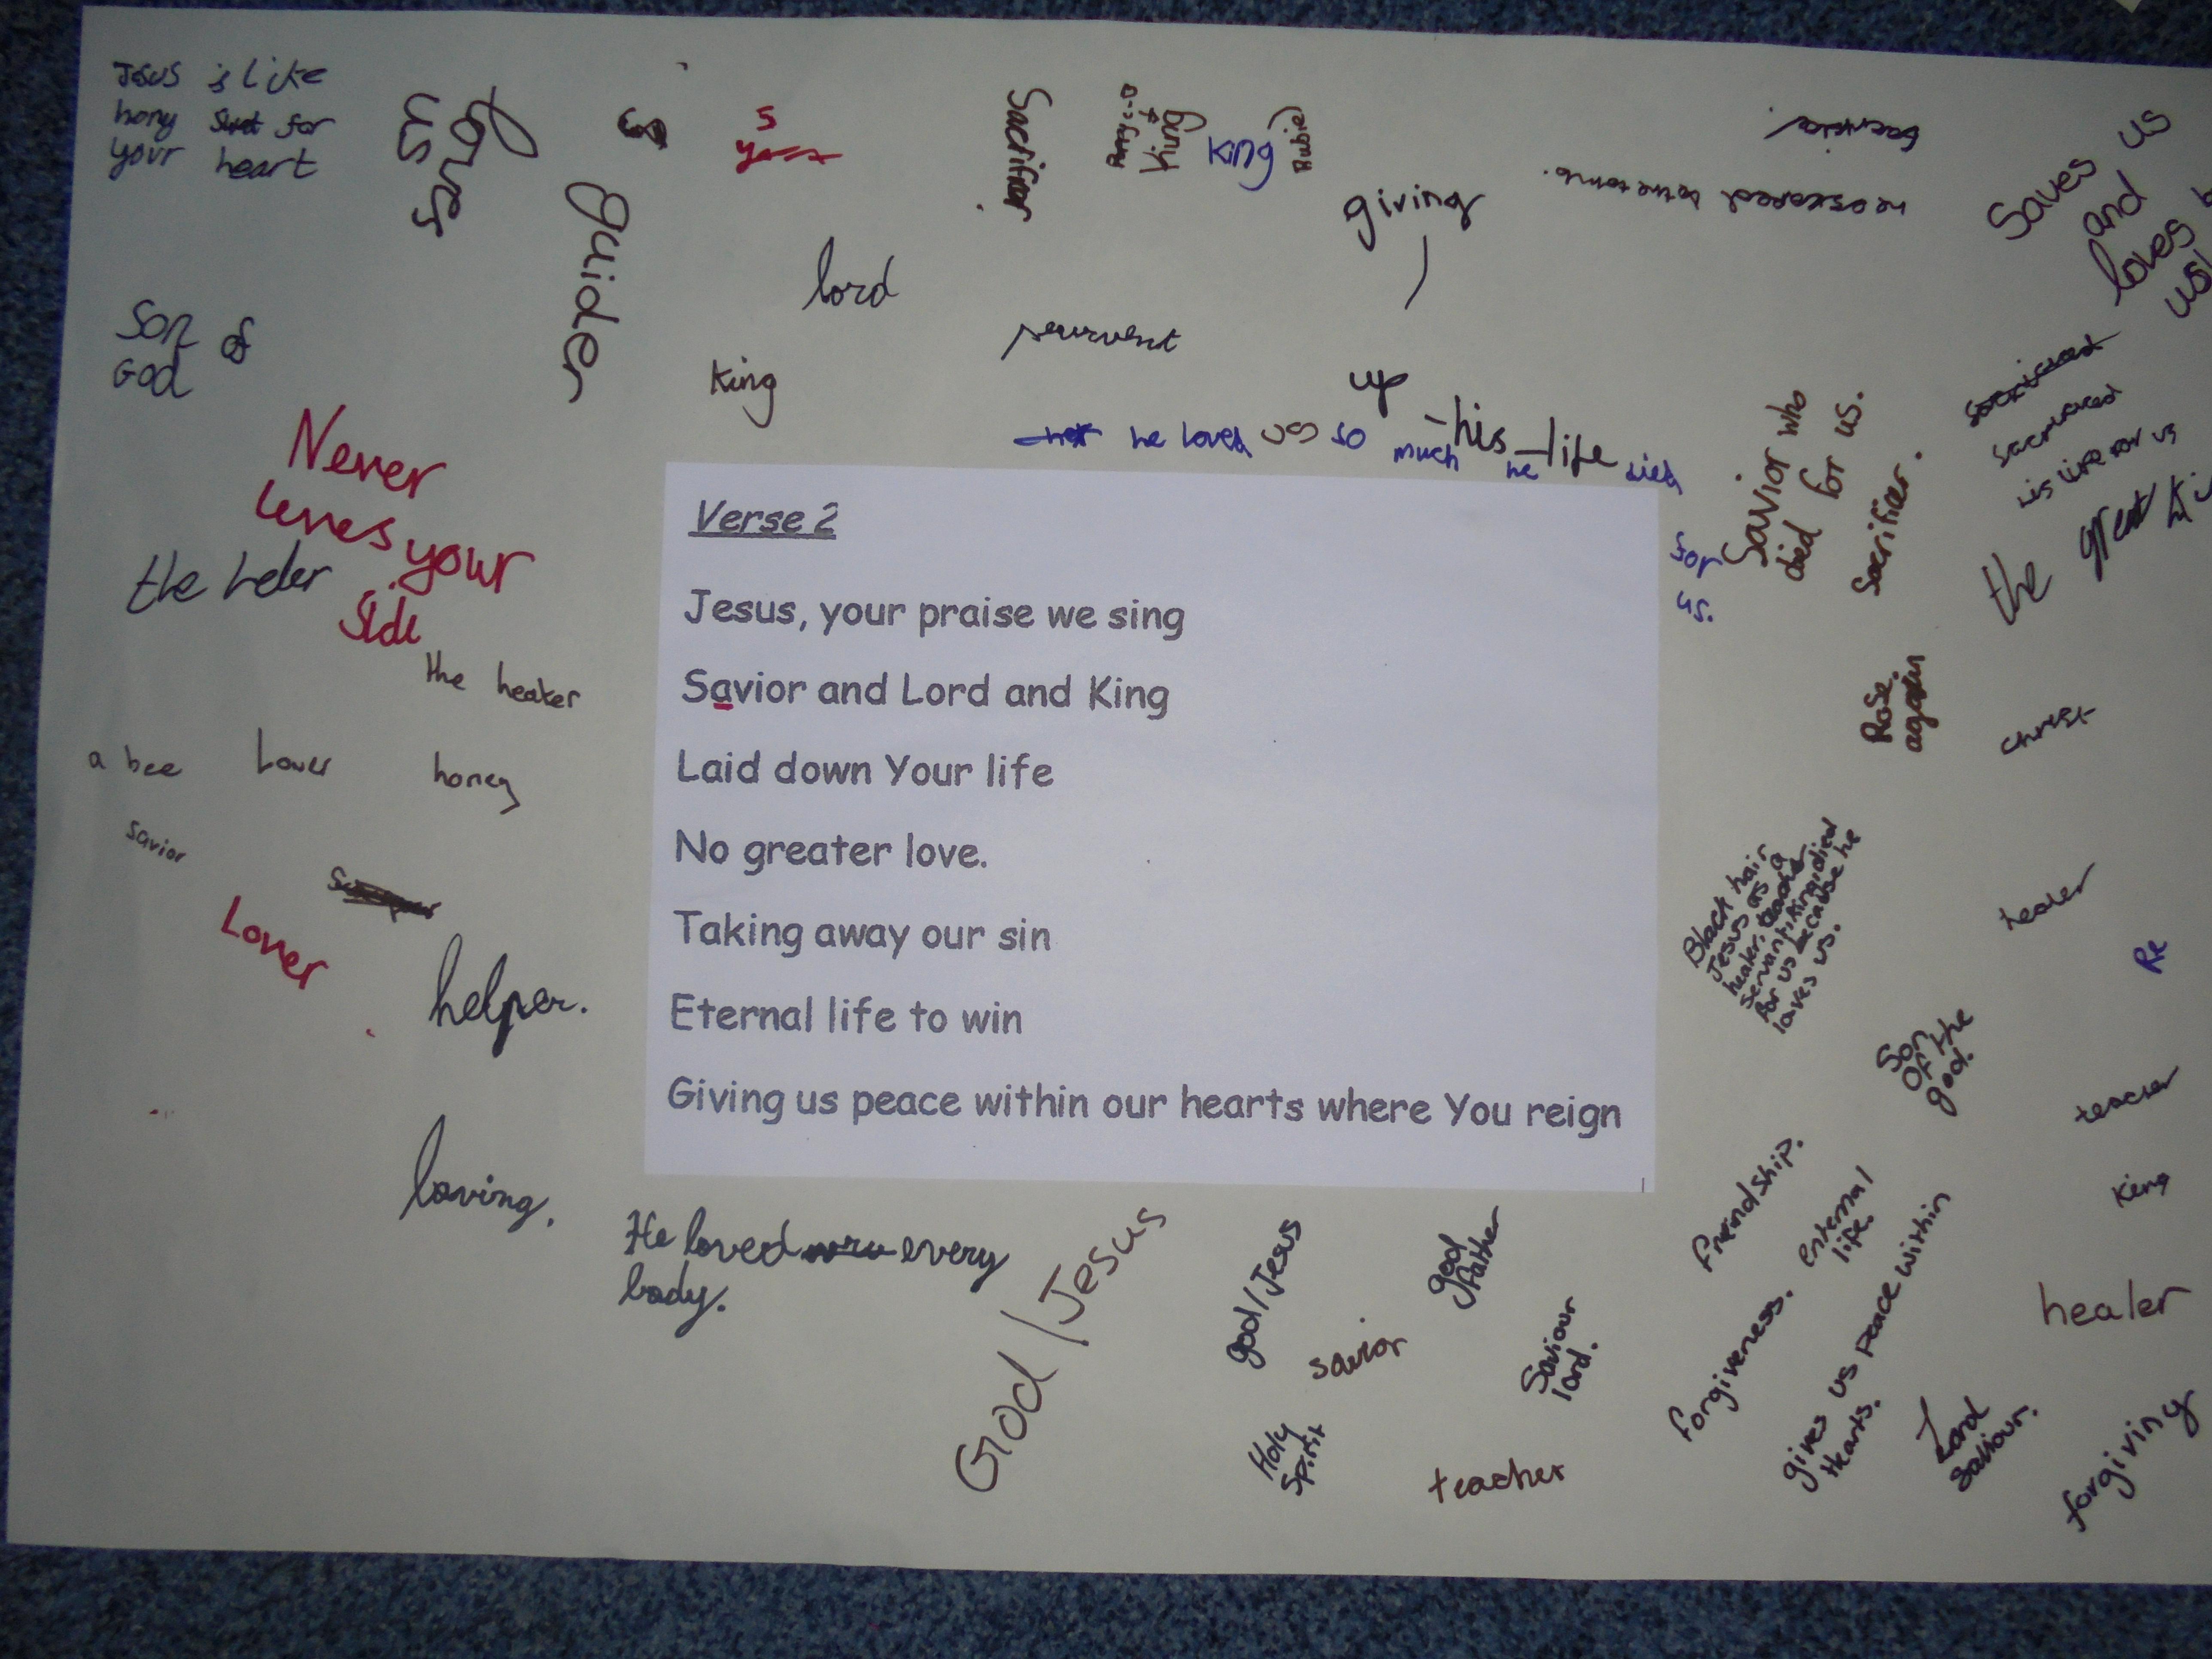 Jesus is like
hony swet for
your heart
loves
us
guider
s
Sacrifier.
King
King
Rubie
giving
up
his life
Saves us
and
loves
us
lord
Son of
God
King
he loved us so much he died
for
us.
Savior who
died for us.
Sacrifier.
sacrificed
his life for us
the great
Never
leves your
Side
the heler
the heaker
a bee
Lover
honey
savior
Lover
helper.
Verse 2
Jesus, your praise we sing
Savior and Lord and King
Laid down Your life
No greater love.
Taking away our sin
Eternal life to win
Giving us peace within our hearts where You reign
Rose
again
christ
Black hair
Jesus as a
healer, teacher
servant, king, died
for us because he
loves us.
healer
Re
Son
of the
god.
teacher
King
loving.
He loved every
body.
God / Jesus
god / Jesus
god
father
savior
Saviour
lord.
Holy
Spirit
teacher
freindship.
enternal
life.
forgiveness.
gives us peace within
Hearts.
healer
Lord
Saviour.
forgiving